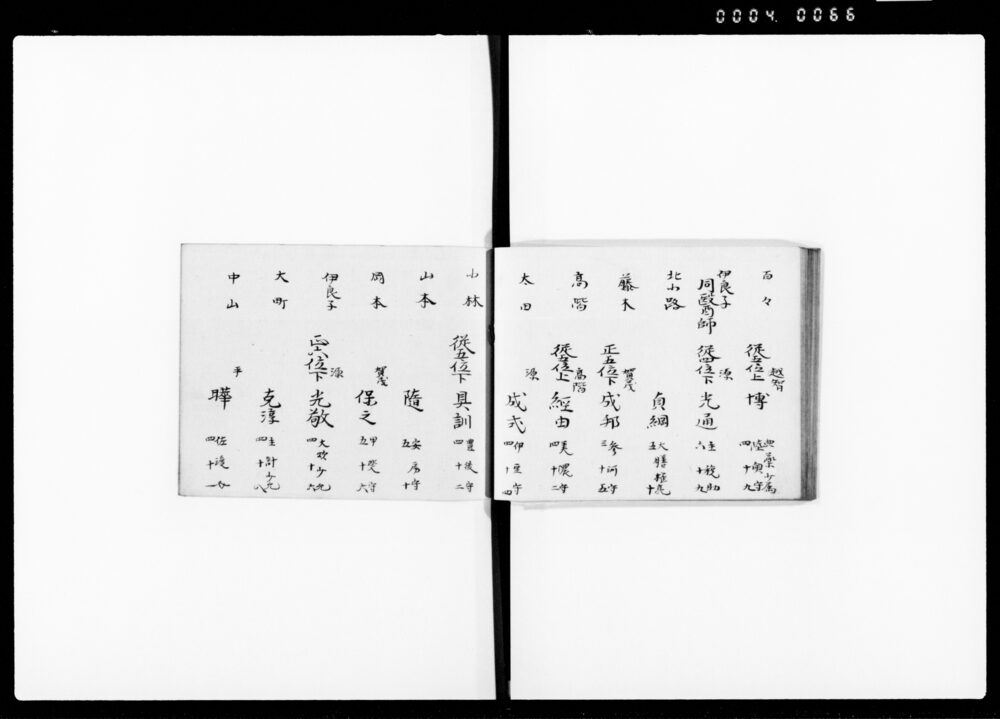 0004.0066
百々 越智
従五位上 博 典薬少属 陸奥守 四十九
伊良子
同醫師 源
従四位下 光通 主税助 六十九
北小路 貞綱 大膳権亮 五十
藤木 賀茂
正五位下 成邦 参河守 三十五
高階 高階
従五位上 經由 美濃守 四十二
太田 源 成式 伊豆守 四十四
小林
従五位下 具訓 豊後守 四十二
山本 隨 安房守 五十
岡本 賀茂 保之 甲斐守 五十六
伊良子 源
正六位下 光敬 大炊少允 四十六
大町 克淳 主計少允 四十八
中山 平 曄 佐渡 四十一